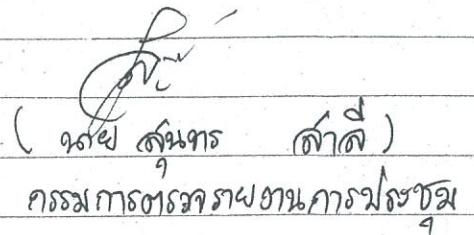 ( นาย สุนทร สาลี )
กรรมการตรวจรายงานการประชุม